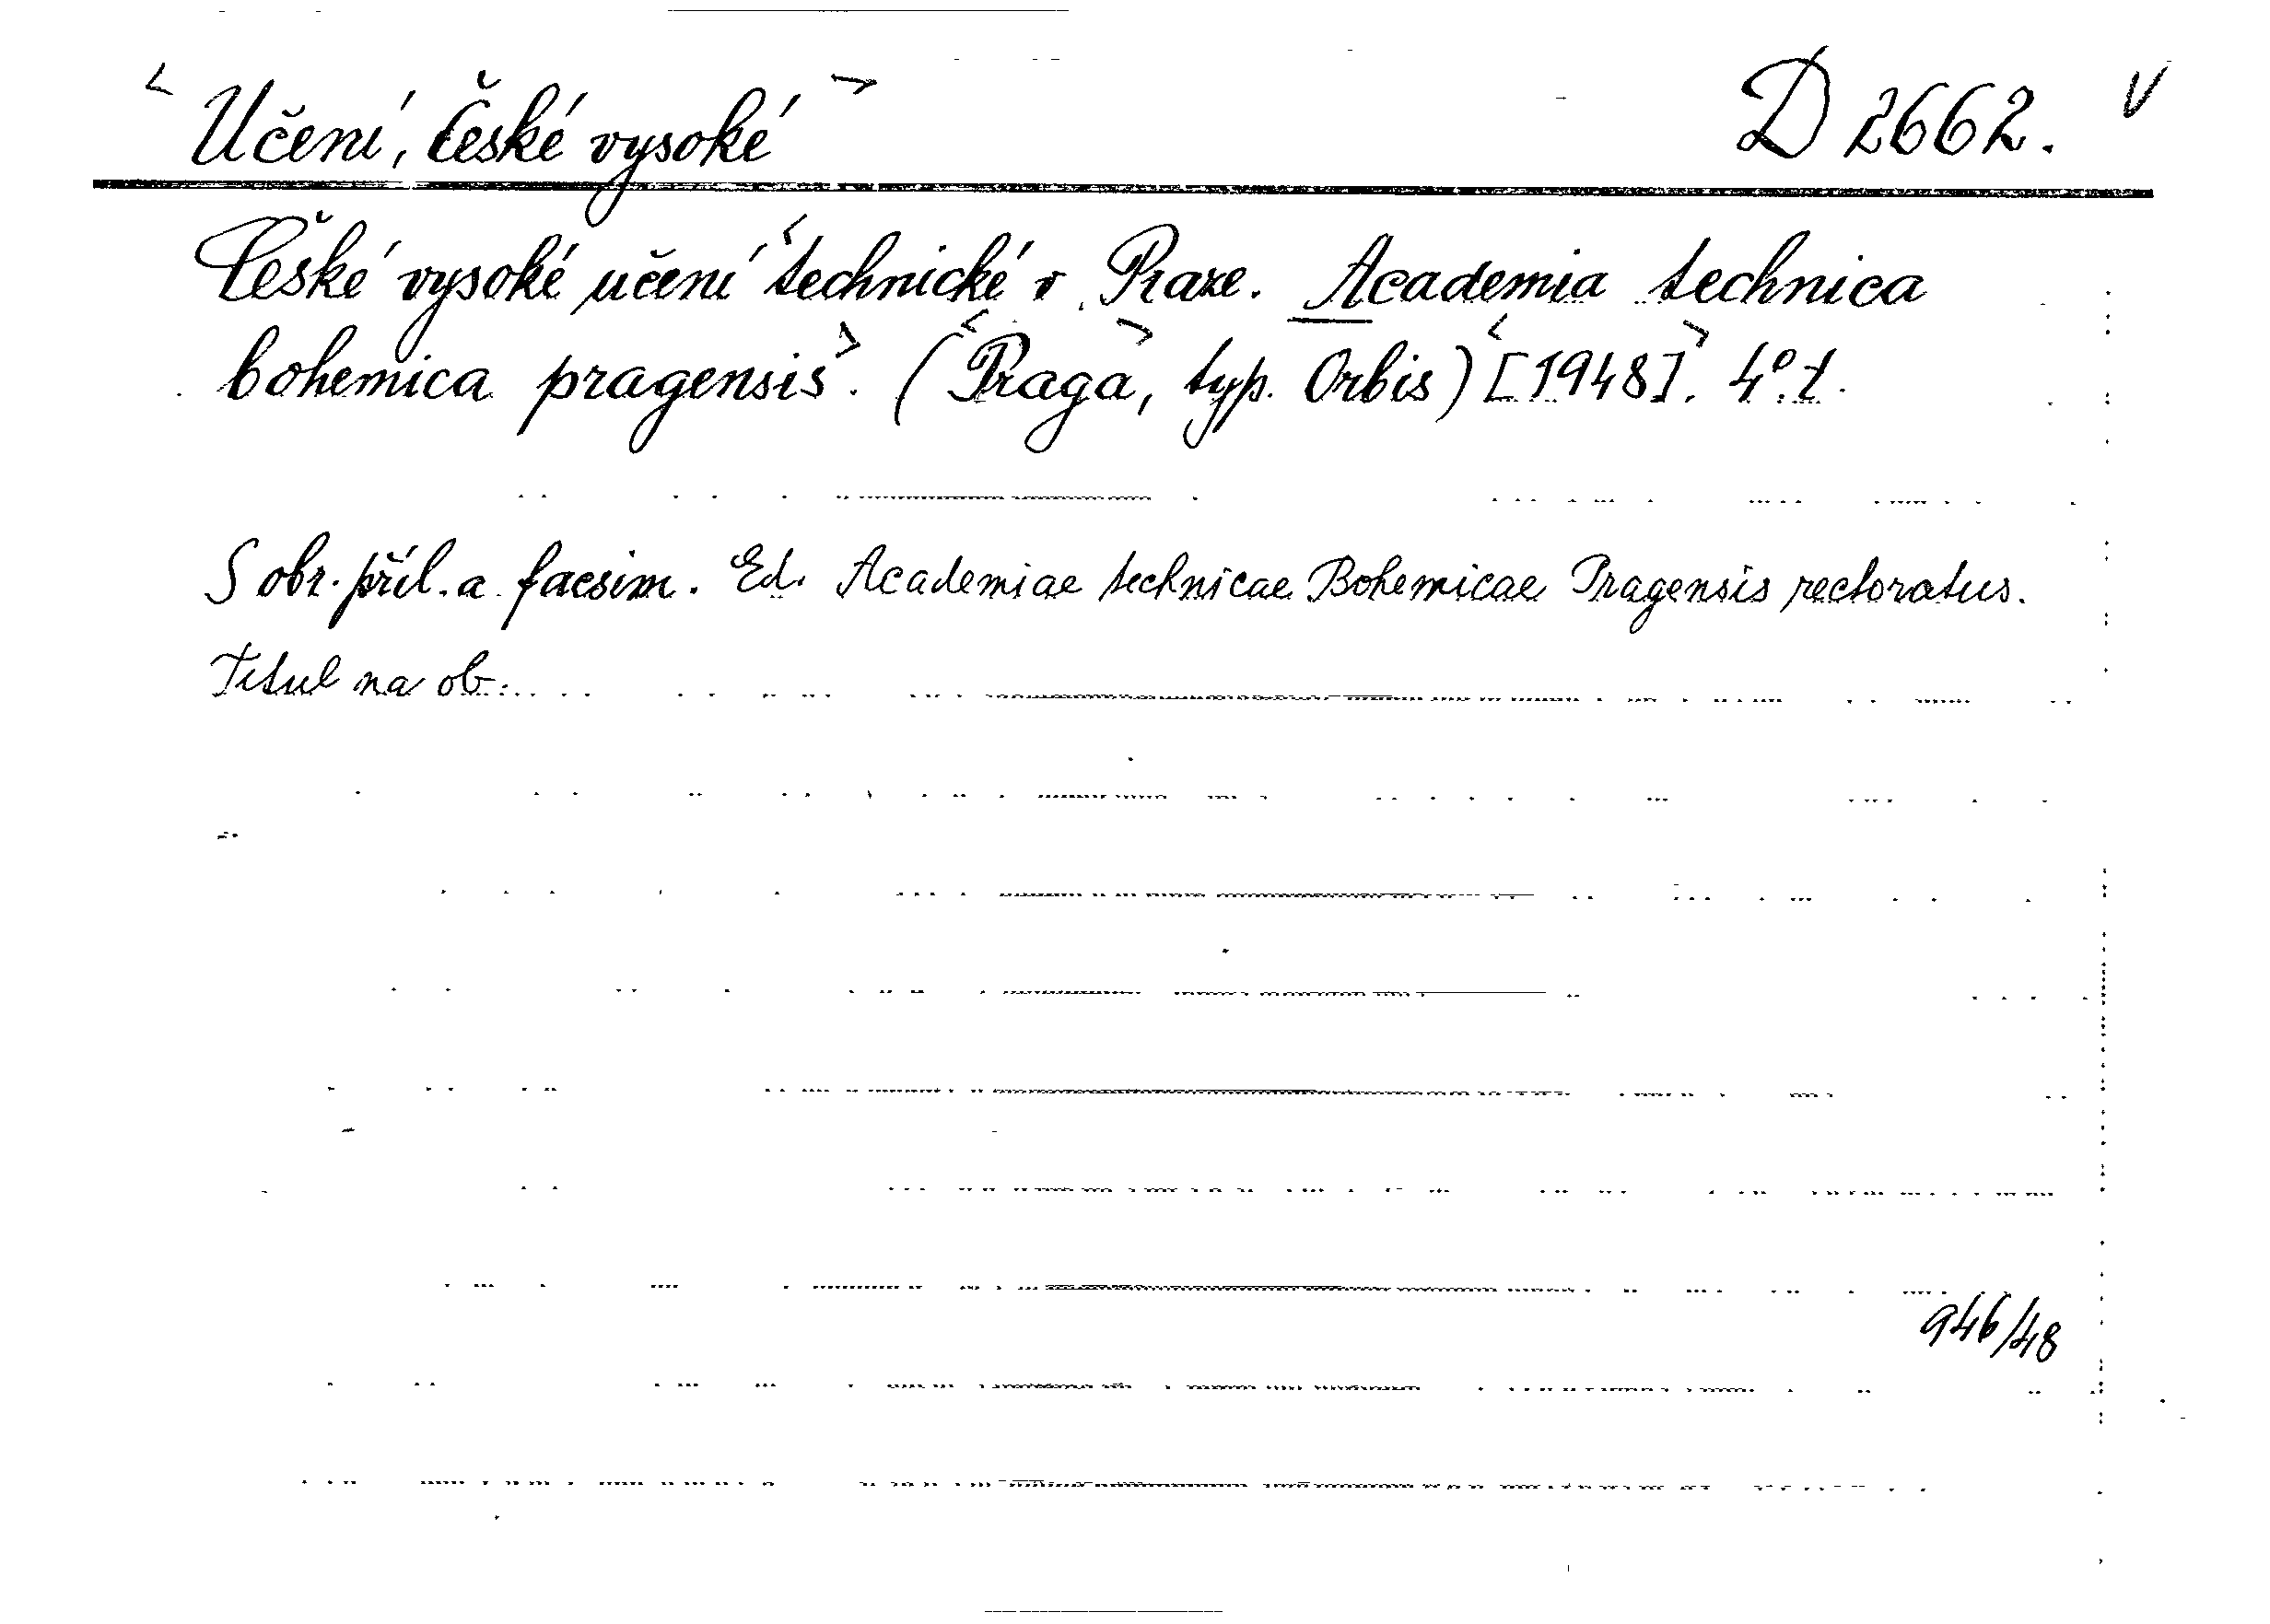 < Učení, české vysoké > D 2662. V
České vysoké učení <technické v Praze. Academia technica
bohemica pragensis>. (<Praga>, typ. Orbis) <[1948]>. 4°. t.
S obr. příl. a facsim. Ed. Academiae technicae Bohemicae Pragensis rectoratus.
Titul na ob.
946/48